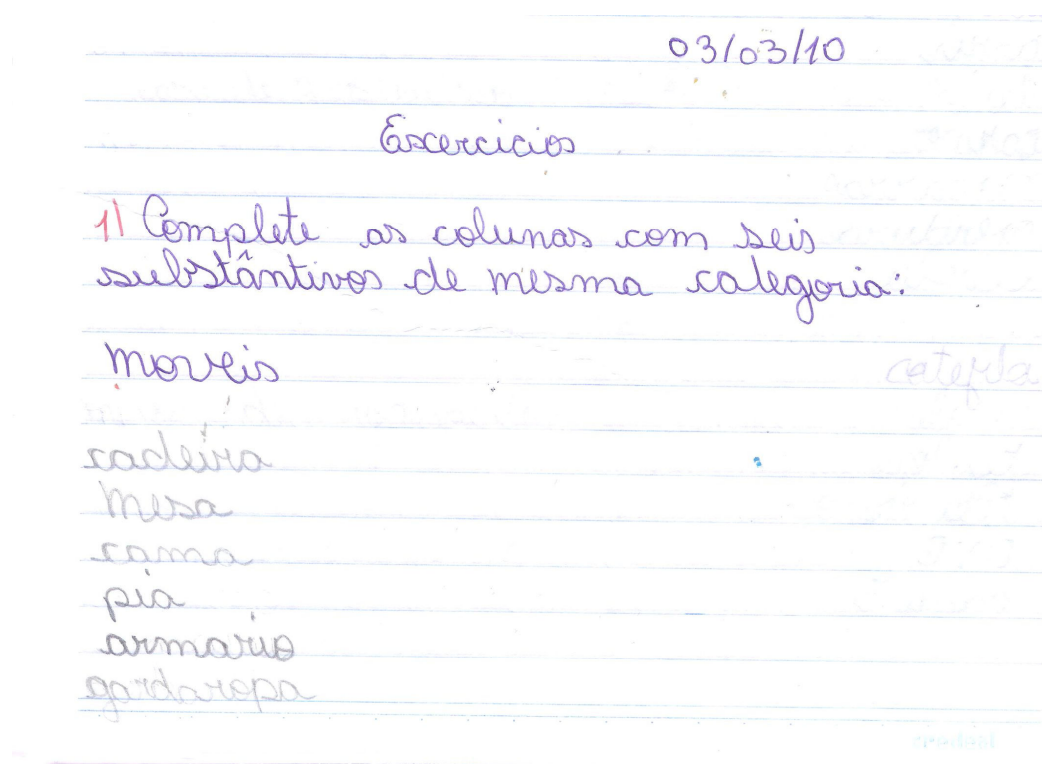 03/03/10
Excercicios
1) Complete as colunas com seis
substântivos de mesma categoria:
moveis
cadeira
mesa
cama
pia
armario
gardaropa